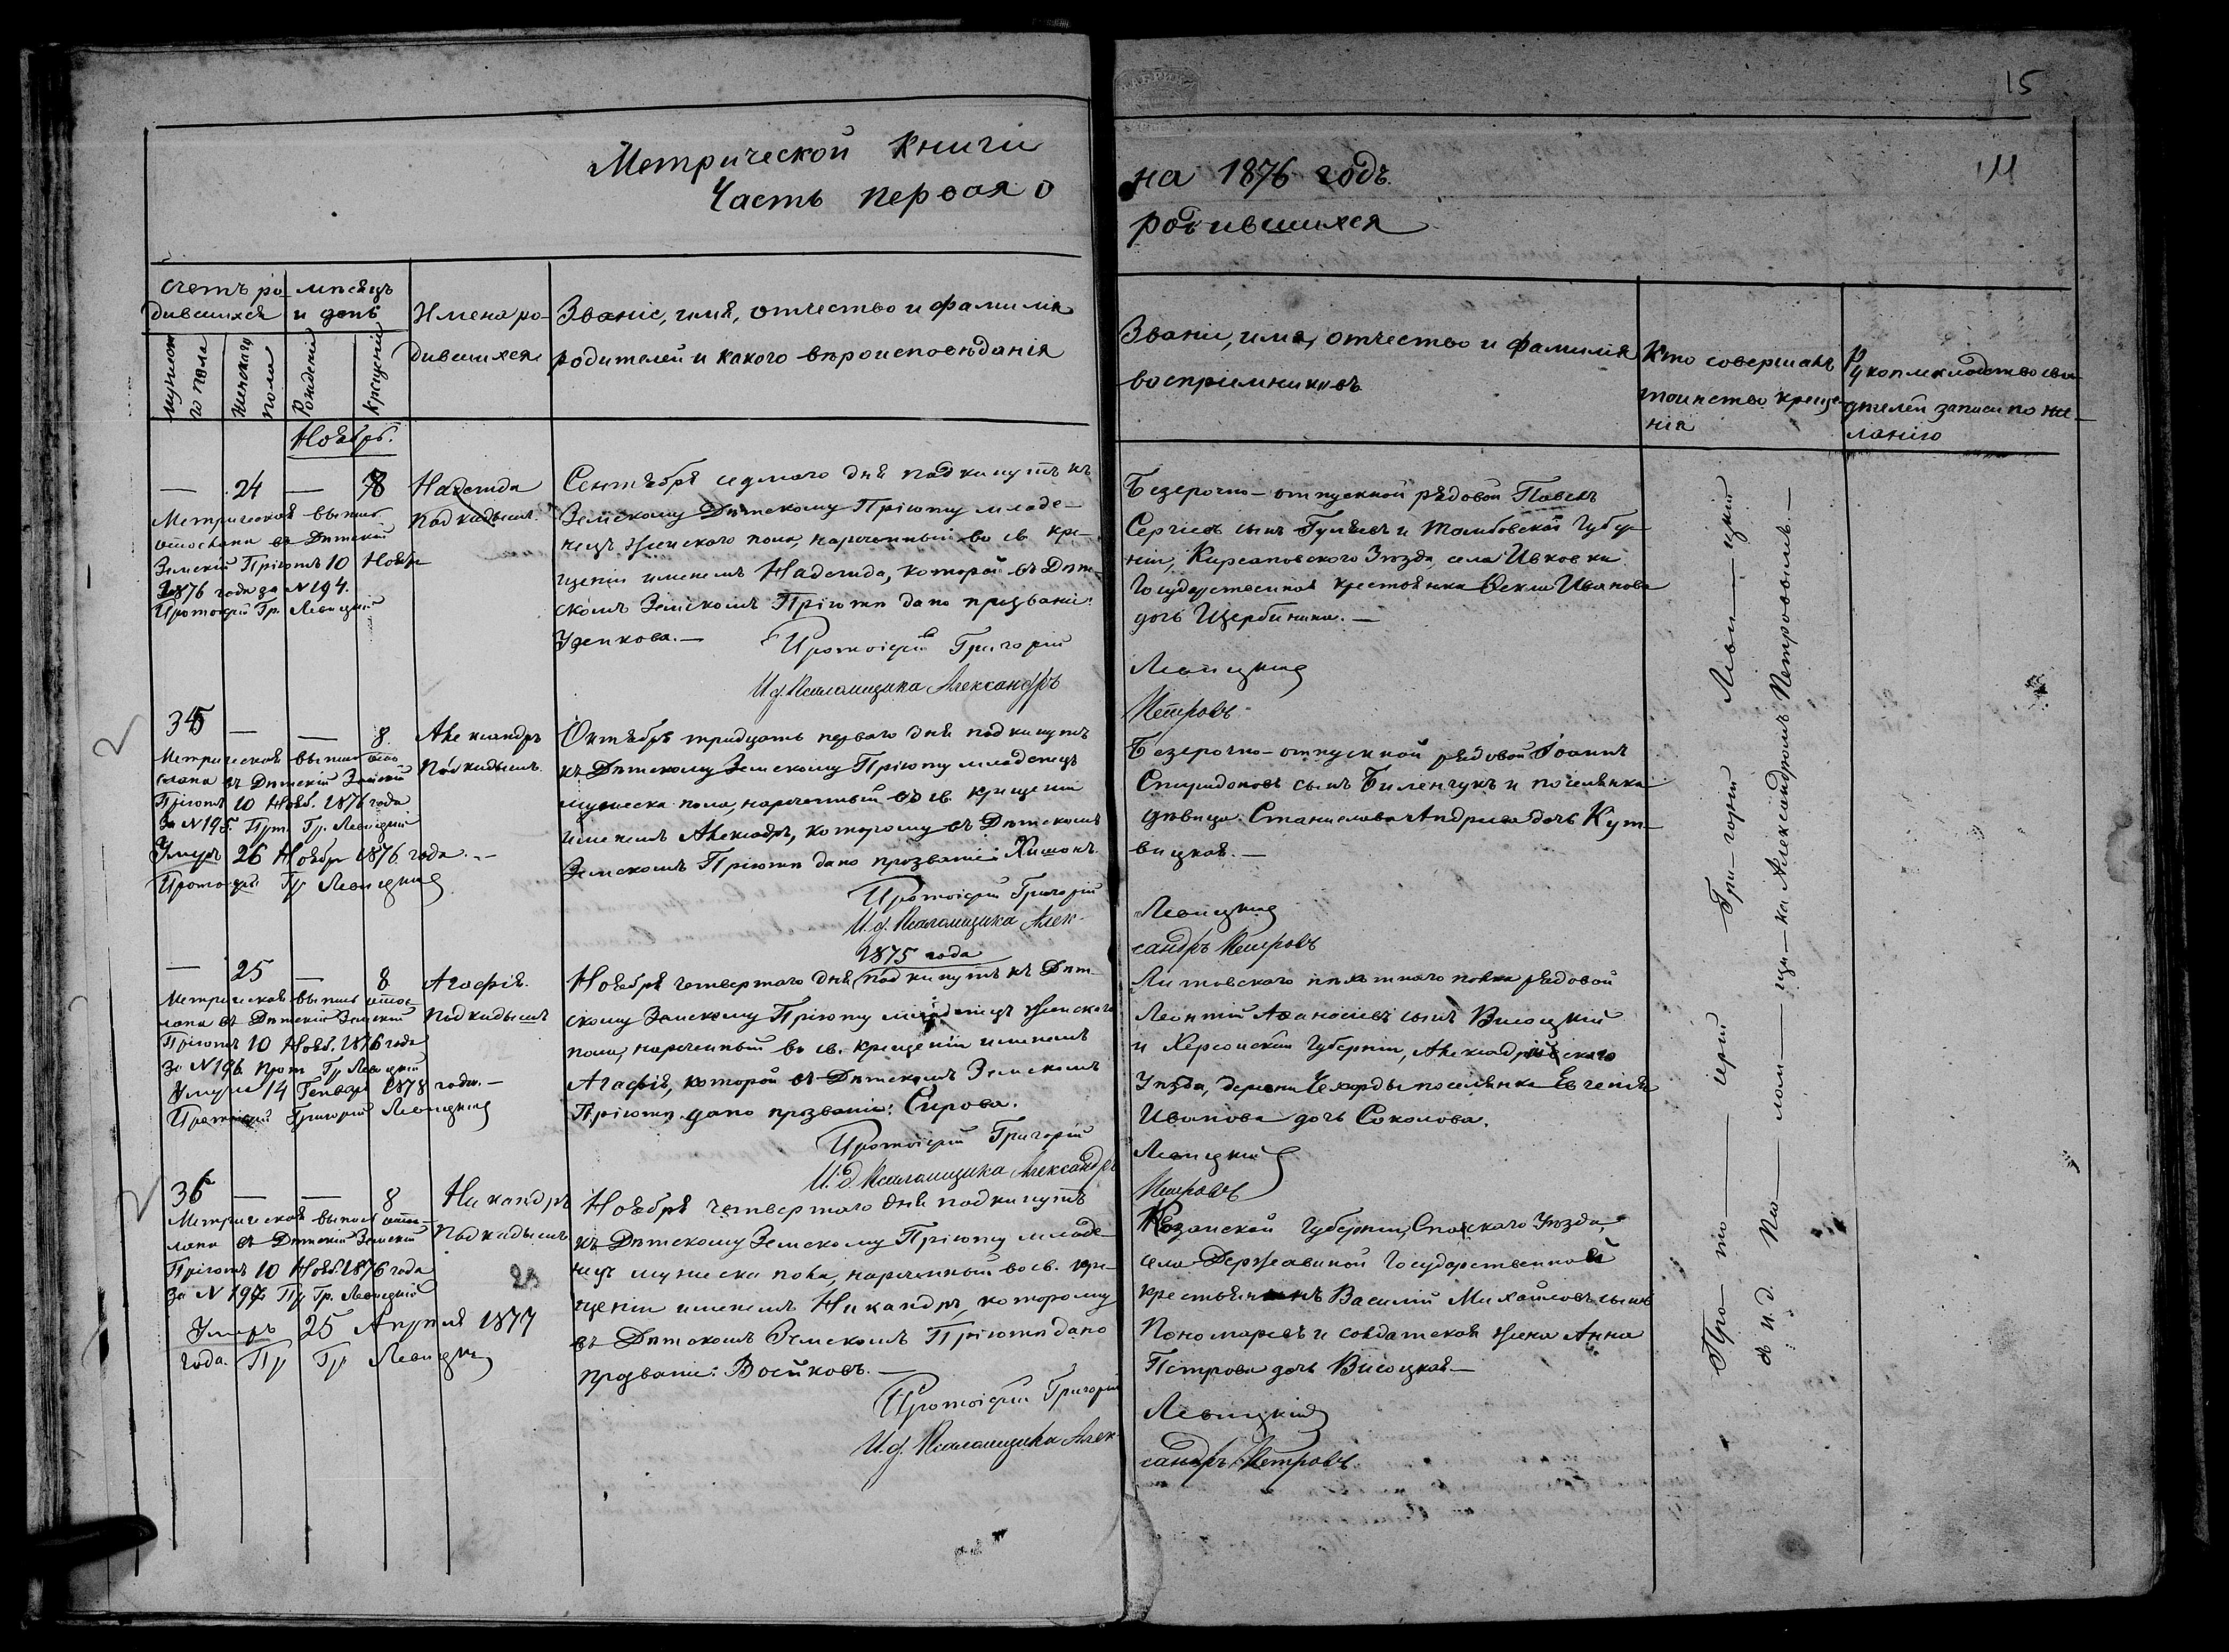 15
Метрической Книги
на 1876 годъ.
Часть первая о
родившихся
Счетъ ро-
дившихся
мѣсяцъ
и день
Мужскаго пола
Женскаго пола
Рожденія
Крещенія
Имена ро-
дившихся
Званіе, имя, отчество и фамилія
родителей и какого вѣроисповѣданія
Званіе, имя, отчество и фамилія
воспріемниковъ
Кто совершалъ
таинство креще-
нія
Рукоприкладство сви-
дѣтелей записи по же-
ланію
Ноябрь.
— 24 — 8
Метрическая выпись
отослана въ Дѣтскій
Земскій Пріютъ 10 Ноябр
1876 года за N 194.
Протоіерей Гр. Левицкій
Надежда
Подкидышъ.
Сентября седмаго дня подкинутъ къ
Земскому Дѣтскому Пріюту младе-
нецъ женскаго пола, нареченный во св. кре-
щеніи именемъ Надежда, которой въ Дѣт-
скомъ Земскомъ Пріютѣ дано прозваніе:
Уренкова. —
Протоіерей Григорій
И.д. Псаломщика Александръ
Безсрочно-отпускной рядовой Павелъ
Сергіевъ сынъ Гуляевъ и Тамбовской Губер-
ніи, Кирсановскаго Уѣзда, села Ивковки
Государственная крестьянка Ѳекла Иванова
дочь Щербинина. —
Левицкій
Петровъ
35 — — 8
Метрическая выпись ото-
слана въ Дѣтскій Земскій
Пріютъ 10 Нояб. 1876 года
за N 195. Прот. Гр. Левицкій
Умеръ 26 Ноябр 1876 года. —
Протоіерей Гр Левицкій
Александръ
Подкидышъ.
Октября тридцать перваго дня подкинутъ
къ Дѣтскому Земскому Пріюту младенецъ
мужеска пола, нареченный въ св. крещеніи
именемъ Александръ, которому въ Дѣтскомъ
Земскомъ Пріютѣ дано прозваніе Хишонъ.
Протоіерей Григорій
И.д. Псаломщика Алек-
Безсрочно-отпускной рядовой Іоаннъ
Спиридоновъ сынъ Биленчукъ и поселянка
дѣвица Станислава Андріева дочь Кут-
вицкая. —
Левицкій
сандръ Петровъ
— 25 — 8
Метрическая выпись отос-
лана въ Дѣтскій Земскій
Пріютъ 10 Нояб. 1876 года
за N 196 Прот Гр Левицкій
Умерла 14 Генваря 1878 года. —
Протоіерей Григорій Левицкій
Агафія.
Подкидышъ
1875 года
Ноября четвертаго дня подкинутъ къ Дѣт-
скому Земскому Пріюту младенецъ женскаго
пола, нареченный во св. крещеніи именемъ
Агафія, которой въ Дѣтскомъ Земскомъ
Пріютѣ дано прозваніе: Сирова.
Протоіерей Григорій
И.д. Псаломщика Александръ
Литовскаго пѣхотнаго полка рядовой
Леонтій Аѳанасіевъ сынъ Висоцкій
и Херсонской Губерніи, Александрійскаго
Уѣзда, деревни поселянка Евгенія
Иванова дочь Соколова.
Левицкій
Петровъ
36 — — 8
Метрическая выпись отос-
лана въ Дѣтскій Земскій
Пріютъ 10 Нояб. 1876 года
за N 197 Пр Гр. Левицкій
Умеръ 25 Апрѣля 1877
года. Пр Гр Левицкій
Никандръ
Подкидышъ
Ноября четвертаго дня подкинутъ
къ Дѣтскому Земскому Пріюту младе-
нецъ мужеска пола, нареченный во св. кре-
щеніи именемъ Никандръ, которому
въ Дѣтскомъ Земскомъ Пріютѣ дано
прозваніе: Войковъ. —
Протоіерей Григорій
И.д. Псаломщика Алек-
Казанской Губерніи, Спаскаго Уѣзда,
села Державиной Государственной
крестьянинъ Василій Михайловъ сынъ
Пономаревъ и солдатская жена Анна
Петрова дочь Висоцкая —
Левицкій
сандръ Петровъ
Про-то-іерей Гри-горій Леви-цкій
съ и. д. Пса-лом-щи-ка Александромъ Петровымъ. —